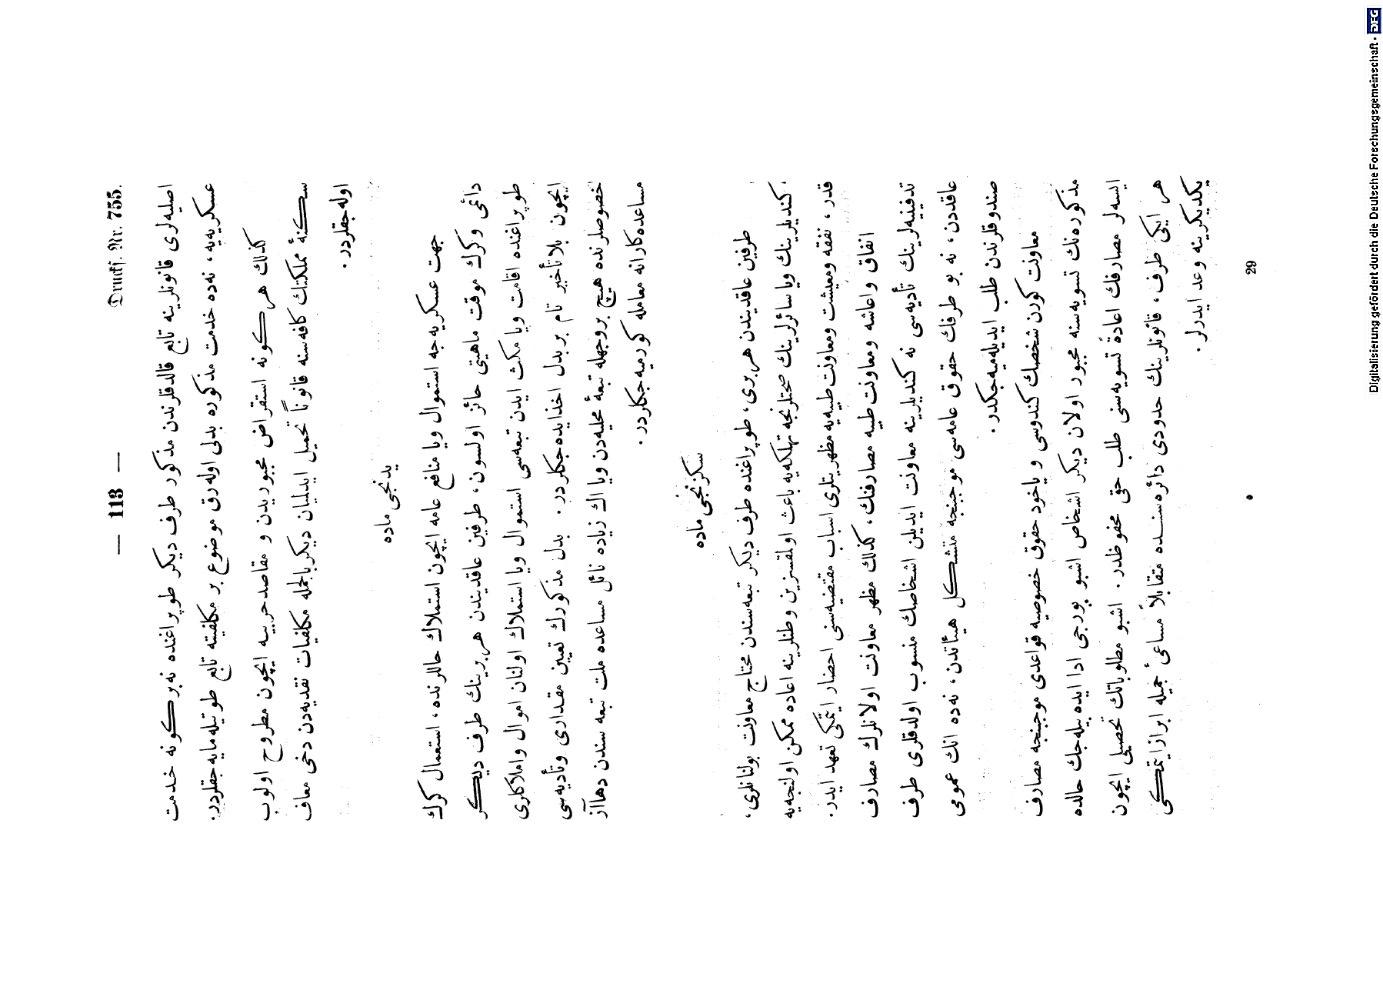 — 113 —
Drucks. Nr. 755.
اصلیه‌لری قانونلرینه تابع قالدقلرندن مذکور طرف دیکر طوپراغنده نه‌برکونه خدمت
عسکریه‌یه، نه‌ده خدمت مذکوره بدلی اوله‌رق موضوع بر مکلفیته تابع طوتیله‌مایه‌جقلردر.
کذلك هرکونه استقراض مجبوریدن و مقاصد حربیه ایچون مطروح اولوب
سکنهٔ مملکتك کافه‌سنه قانوناً تحمیل ایدلمیان دیکر بالجمله مکلفیات نقدیه‌دن دخی معاف
اوله‌جقلردر.
یدنجی ماده
جهت عسکریه‌جه استعمال ویا منافع عامه ایچون استملاك حاللرنده، استعمال کرك
دائمی وکرك موقت ماهیتی حائز اولسون، طرفین عاقدیندن هر برینك طرف دیکر
طوپراغنده اقامت ویا مکث ایدن تبعه‌سی استعمال ویا استملاك اولنان اموال واملاکلری
ایچون بلا تأخیر تام بر بدل اخذ ایده‌جکلردر. بدل مذکورك تعیین مقداری وتأدیه‌سی
خصوصلرنده هیچ بر وجهله تبعهٔ محلیه‌دن ویا اك زیاده نائل مساعده ملت تبعه سندن دها آز
مساعده‌کارانه معامله کورمیه‌جکلردر.
سکزنجی ماده
طرفین عاقدیندن هر بری، طوپراغنده طرف دیکر تبعه‌سندن محتاج معاونت بولنانلری،
کندیلرینك ویا سائرلرینك صحتلرنجه تهلکه‌یه باعث اولمقسزین وطنلرینه اعاده ممکن اولنجه‌یه
قدر، نفقه ومعیشت ومعاونت طبیه‌یه مظهریتلری اسباب مقتضیه‌سنی احضار ایتمکی تعهد ایدر.
انفاق واعاشه ومعاونت طبیه مصارفك، کذلك مظهر معاونت اولانلرك مصارف
تدفینیه‌لرینك تأدیه‌سی نه کندیلرینه معاونت ایدیلن اشخاصك منسوب اولدقلری طرف
عاقددن، نه بو طرفك حقوق عامه‌سی موجبنجه متشکل هیئاتدن، نه‌ده انك عمومی
صندوقلرندن طلب ایدیله‌میه‌جکدر.
معاونت کورن شخصك کندوسی و یاخود حقوق خصوصیه قواعدی موجبنجه مصارف
مذکوره‌نك تسویه‌سنه مجبور اولان دیکر اشخاص اشبو بورجی ادا ایده بیله‌جك حالده
ایسه‌لر مصارفك اعادهٔ تسویه‌سنی طلب حقی محفوظدر. اشبو مطلوباتك تحصیلی ایچون
هر ایکی طرف، قانونلرینك حدودی دائره‌سنده متقابلاً مساعی‌ٔ جمیله ابراز ایتمکی
یکدیکرینه وعد ایدرلر.
29
Digitalisierung gefördert durch die Deutsche Forschungsgemeinschaft - DFG